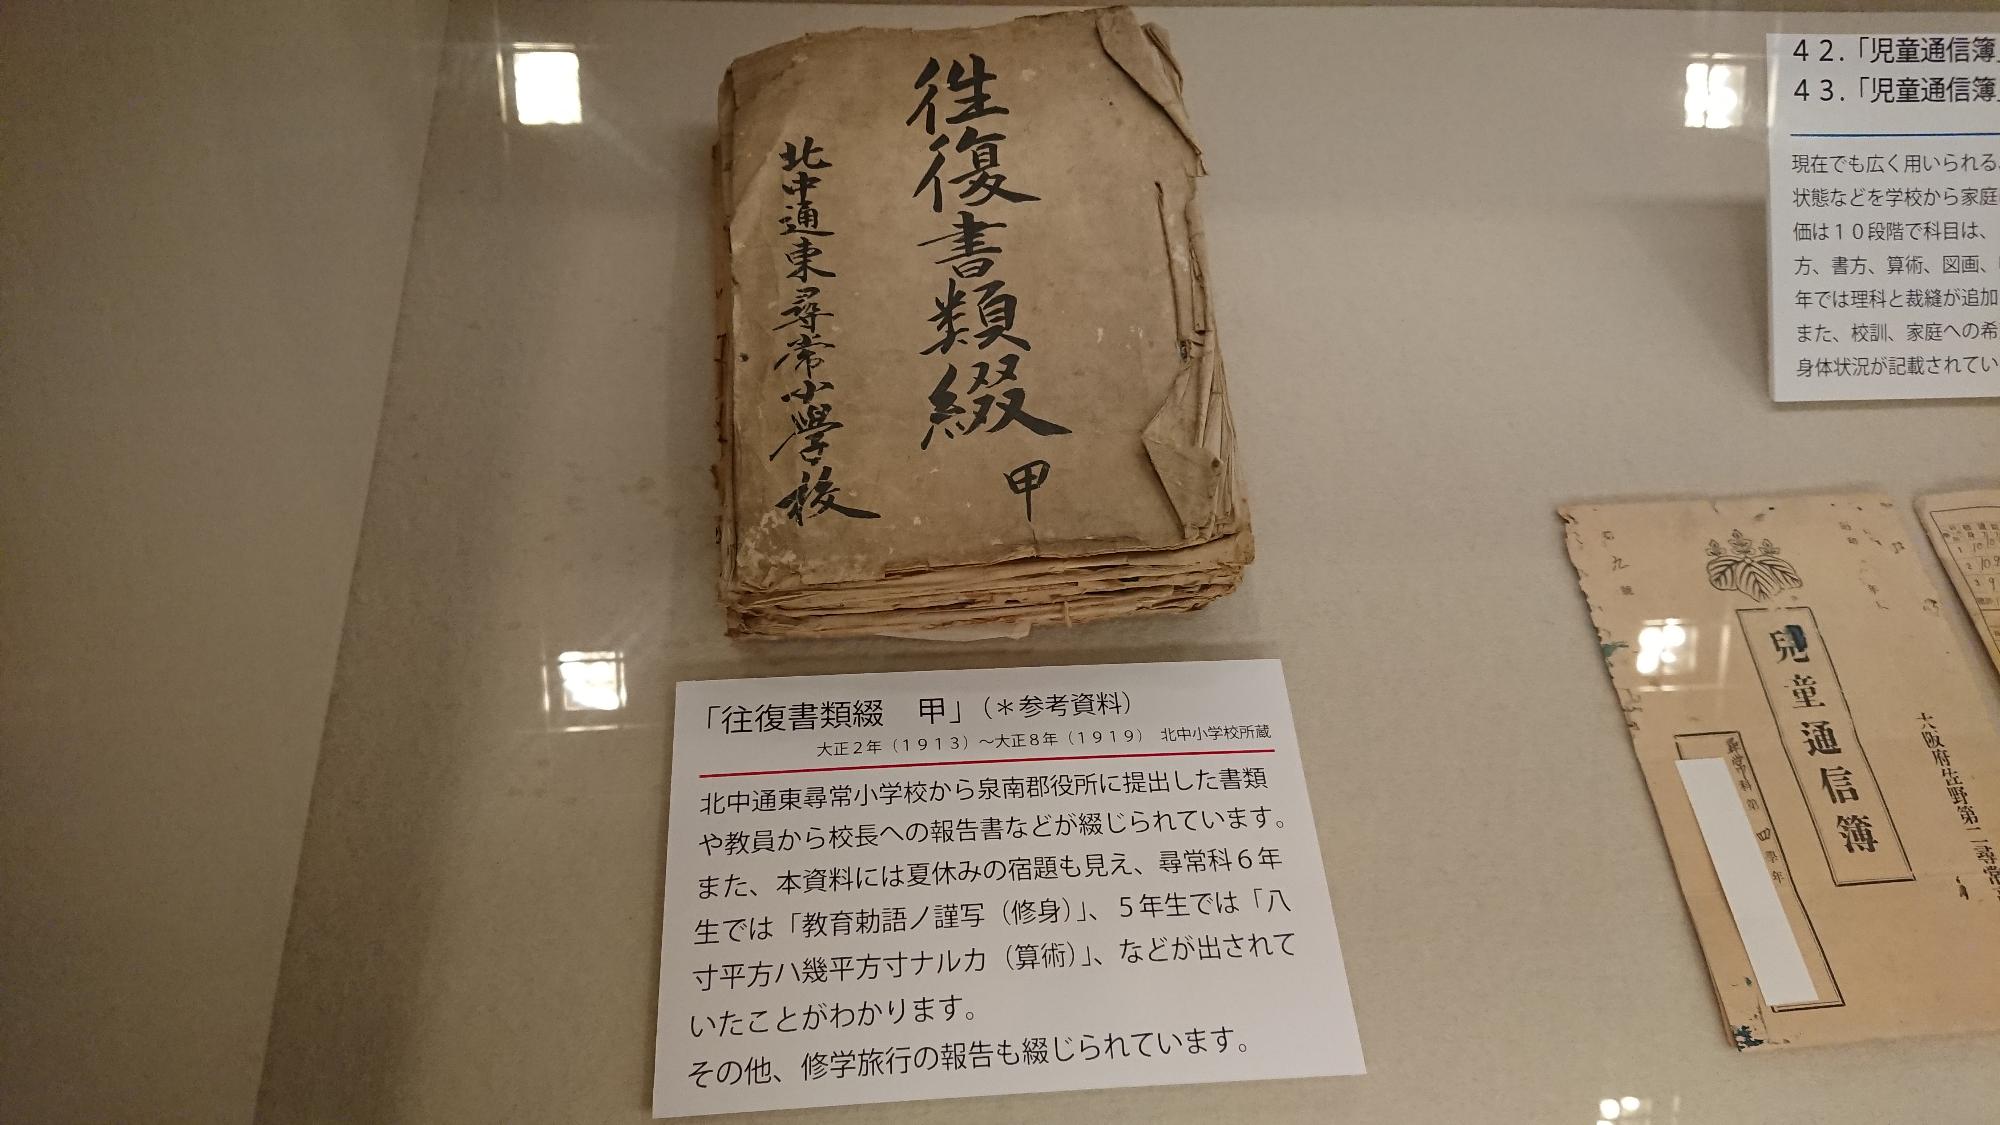 往復書類綴
甲
北中通東尋常小學校
「往復書類綴　甲」（＊参考資料）
大正２年（１９１３）～大正８年（１９１９）　北中小学校所蔵
北中通東尋常小学校から泉南郡役所に提出した書類
や教員から校長への報告書などが綴じられています。
また、本資料には夏休みの宿題も見え、尋常科６年
生では「教育勅語ノ謹写（修身）」、５年生では「八
寸平方ハ幾平方寸ナルカ（算術）」、などが出されて
いたことがわかります。
その他、修学旅行の報告も綴じられています。
４２.「児童通信簿」
４３.「児童通信簿」
現在でも広く用いられる
状態などを学校から家庭
価は１０段階で科目は、
方、書方、算術、図画、
年では理科と裁縫が追加
また、校訓、家庭への希
身体状況が記載されてい
兒童通信簿
大阪府佐野第二尋常
尋常科第四學年